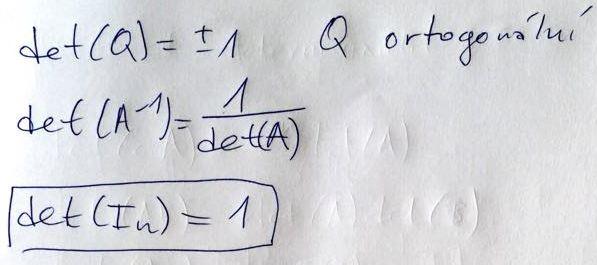 det(Q) = ±1 Q ortogonální
det(A⁻¹) = 1/det(A)
det(Iₙ) = 1